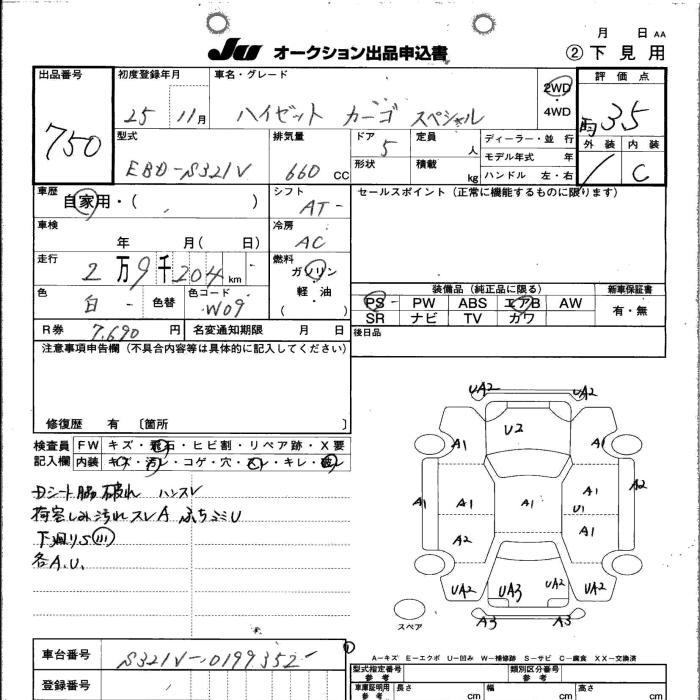 月 日 AA
JU オークション出品申込書 ② 下見用
出品番号 初度登録年月 車名・グレード 評価点
750 25 11月 ハイゼット カーゴ スペシャル 2WD 4WD 3.5
型式 排気量 ドア 定員 ディーラー・並行 外装 内装
EBD-S321V 660 CC 5 人 モデル年式 年 C
形状 積載 kg ハンドル 左・右
車歴 シフト セールスポイント（正常に機能するものに限ります）
自家用・( ) AT
車検 冷房
年 月( 日) AC
走行 燃料
2万9千204km ガソリン
色 色替 色コード 軽油
白 W09 ( )
装備品（純正品に限る） 新車保証書
PS PW ABS エアB AW 有・無
SR ナビ TV ガワ
R券 7,690円 名変通知期限 月 日 後日品
注意事項申告欄（不具合内容等は具体的に記入してください）
修復歴 有 〔箇所 〕
検査員 FW キズ・飛石・ヒビ割・リペア跡・X要
記入欄 内装 キズ・汚レ・コゲ・穴・スレ・キレ・破レ
Dシート脇破れ ハンスレ
荷室しみ汚れスレA ふちミミU
下廻りS
各A.U.
UA2 UA2
U2
A1 A1
A1 A1 A1 A1 A2
U1
A2 A2
UA2 UA3 UA2 UA2
A3 A3
スペア
A－キズ E－エクボ U－凹み W－補修跡 S－サビ C－腐食 XX－交換済
車台番号 S321V-0199352
登録番号
型式指定番号 類別区分番号
参考
車庫証明用 参考 長さ cm 幅 cm 高さ cm